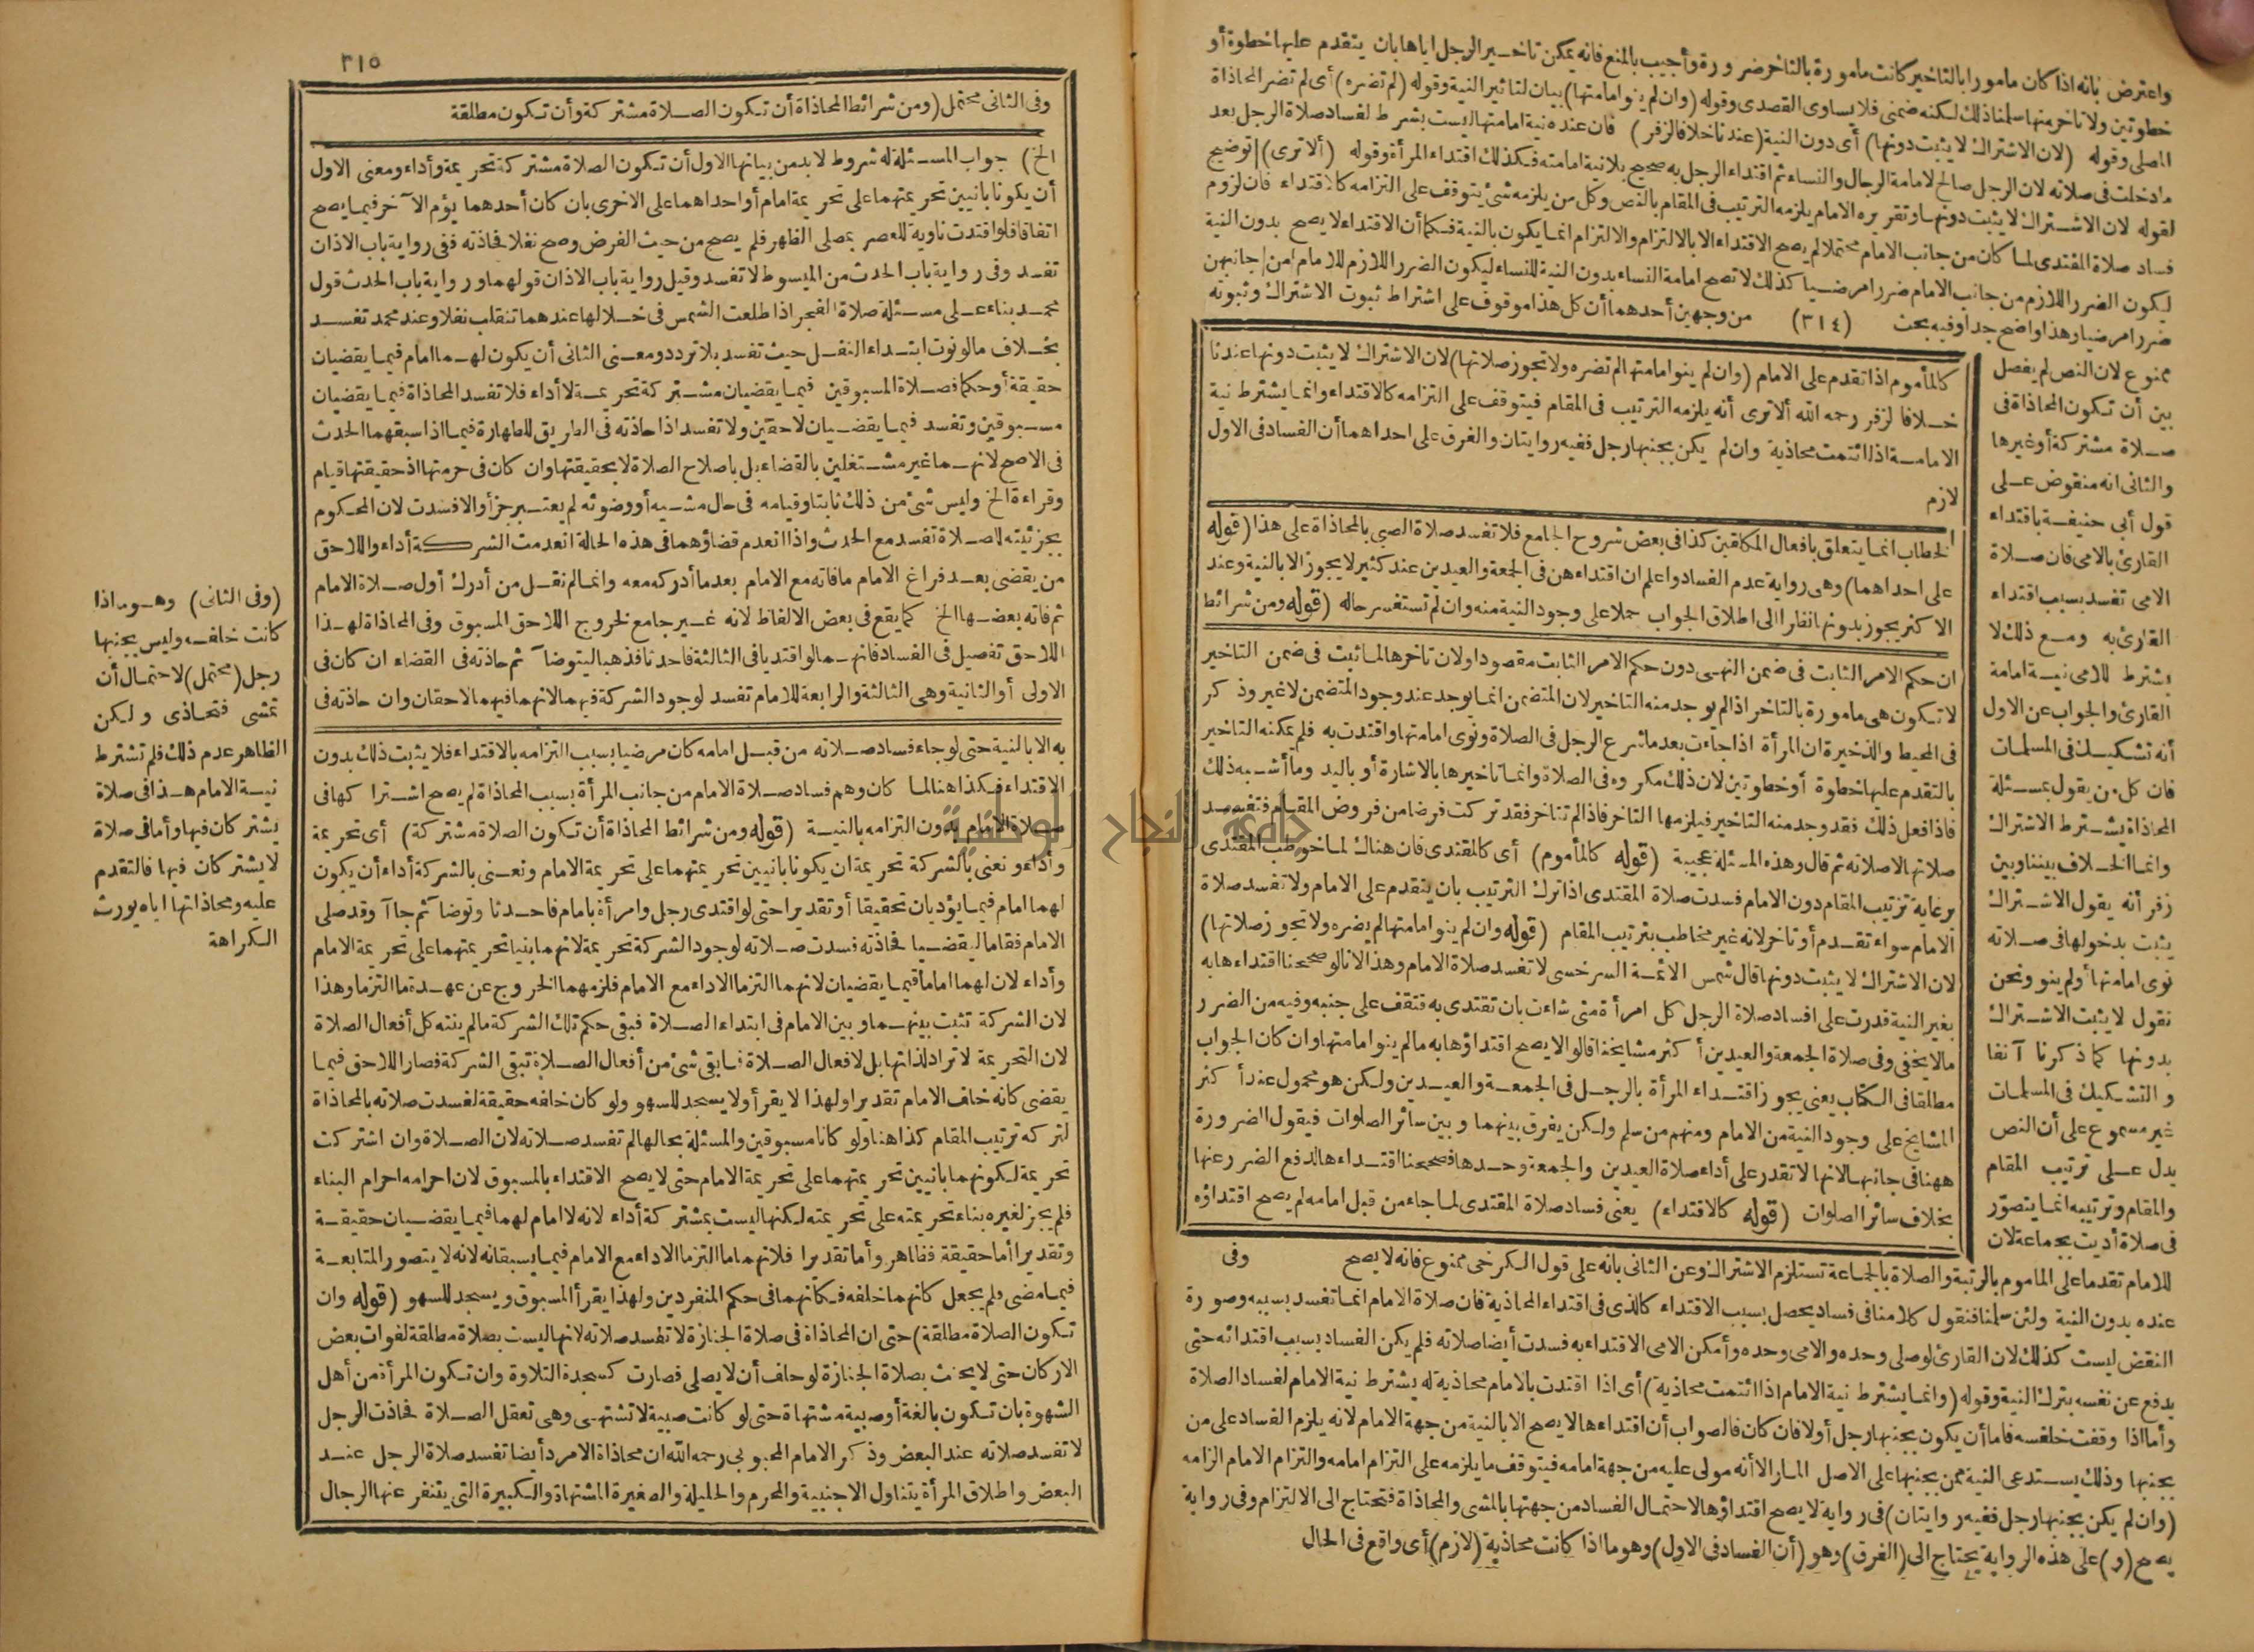 واعترض بانه اذا كان مامورا بالتاخير كانت مامورة بالتاخر ضرورة وأجيب بالمنع فانه يمكن تاخير الرجل اياها بان يتقدم عليها خطوة أو
خطوتين ولا تاخر منها سلمنا ذلك لكنه ضمنى فلا يساوى القصدى وقوله (وان لم ينو امامتها) بيان لتاثير النية وقوله (لم تضره) أى لم تضر المحاذاة
المصلى وقوله (لان الاشتراك لا يثبت دونها) أى دون النية (عندنا خلافا لزفر) فان عنده نية امامتها ليست بشرط لفساد صلاة الرجل بعد
ما دخلت فى صلاته لان الرجل صالح لامامة الرجال والنساء ثم اقتداء الرجل به صحيح بلا نية امامته فكذلك اقتداء المرأة وقوله (ألا ترى) توضيح
لقوله لان الاشتراك لا يثبت دونها وتقريره الامام يلزمه الترتيب فى المقام بالنص وكل من يلزمه شئ يتوقف على التزامه كالاقتداء فان لزوم
فساد صلاة المقتدى لما كان من جانب الامام محتملا لم يصح الاقتداء الا بالالتزام والالتزام انما يكون بالنية فكما أن الاقتداء لا يصح بدون النية
ليكون الضرر اللازم من جانب الامام ضررا مرضيا كذلك لا تصح امامة النساء بدون النية للنساء ليكون الضرر اللازم للامام من جانبهن
ضررا مرضيا وهذا واضح جدا وفيه بحث (٣١٤) من وجهين أحدهما أن كل هذا موقوف على اشتراط ثبوت الاشتراك وثبوته
ممنوع لان النص لم يفصل
بين أن تكون المحاذاة فى
صلاة مشتركة أو غيرها
والثانى انه منقوض على
قول أبى حنيفة باقتداء
القارئ بالامى فان صلاة
الامى تفسد بسبب اقتداء
القارئ به ومع ذلك لا
يشترط للامى نية امامة
القارئ والجواب عن الاول
أنه تشكيك فى المسلمات
فان كل من يقول بمسئلة
المحاذاة يشترط الاشتراك
وانما الخلاف بيننا وبين
زفر أنه يقول الاشتراك
يثبت بدخولها فى صلاته
نوى امامتها أو لم ينو ونحن
نقول لا يثبت الاشتراك
بدونها كما ذكرنا آنفا
والتشكيك فى المسلمات
غير مسموع على أن النص
يدل على ترتيب المقام
والمقام وترتيبه انما يتصور
فى صلاة أديت بجماعة لان
كالمأموم اذا تقدم على الامام (وان لم ينو امامتها لم تضره ولا تجوز صلاتها) لان الاشتراك لا يثبت دونها عندنا
خلافا لزفر رحمه الله ألا ترى أنه يلزمه الترتيب فى المقام فيتوقف على التزامه كالاقتداء وانما يشترط نية
الامامة اذا ائتمت محاذية وان لم يكن بجنبها رجل ففيه روايتان والفرق على احداهما أن الفساد فى الاول
لازم
الخطاب انما يتعلق بافعال المكلفين كذا فى بعض شروح الجامع فلا تفسد صلاة الصبى بالمحاذاة على هذا (قوله
على احداهما) وهى رواية عدم الفساد واعلم ان اقتداءهن فى الجمعة والعيدين عند كثير لا يجوز الا بالنية وعند
الاكثر يجوز بدونها نظرا الى اطلاق الجواب حملا على وجود النية منه وان لم تستفسر حاله (قوله ومن شرائط
ان حكم الامر الثابت فى ضمن النهى دون حكم الامر الثابت مقصودا ولان تاخرها لما ثبت فى ضمن التاخير
لا تكون هى مامورة بالتاخر اذا لم يوجد منه التاخير لان المتضمن انما يوجد عند وجود المتضمن لا غير وذكر
فى المحيط والذخيرة ان المرأة اذا جاءت بعد ما شرع الرجل فى الصلاة ونوى امامتها واقتدت به فلم يمكنه التاخير
بالتقدم عليها خطوة أو خطوتين لان ذلك مكروه فى الصلاة وانما تاخيرها بالاشارة أو باليد وما أشبه ذلك
فاذا فعل ذلك فقد وجد منه التاخير فيلزمها التاخر فاذا لم تتاخر فقد تركت فرضا من فروض المقام فتفسد
صلاتها لا صلاته ثم قال وهذه المسئلة عجيبة (قوله كالمأموم) أى كالمقتدى فان هناك لما خوطب المقتدى
برعاية ترتيب المقام دون الامام فسدت صلاة المقتدى اذا ترك الترتيب بان يتقدم على الامام ولا تفسد صلاة
الامام سواء تقدم أو تاخر لانه غير مخاطب بترتيب المقام (قوله وان لم ينو امامتها لم يضره ولا تجوز صلاتها)
لان الاشتراك لا يثبت دونها قال شمس الائمة السرخسى لا تفسد صلاة الامام وهذا لانا لو صححنا اقتداءها به
بغير النية قدرت على افساد صلاة الرجل كل امرأة متى شاءت بان تقتدى به فتقف على جنبه وفيه من الضرر
مالا يخفى وفى صلاة الجمعة والعيدين أكثر مشايخنا قالوا لا يصح اقتداؤها به مالم ينو امامتها وان كان الجواب
مطلقا فى الكتاب يعنى يجوز اقتداء المرأة بالرجل فى الجمعة والعيدين ولكن هو محمول عند أكثر
المشايخ على وجود النية من الامام ومنهم من سلم ولكن يفرق بينهما وبين سائر الصلوات فيقول الضرورة
ههنا فى جانبها لانها لا تقدر على أداء صلاة العيدين والجمعة وحدها فصححنا اقتداءها لدفع الضرر عنها
بخلاف سائر الصلوات (قوله كالاقتداء) يعنى فساد صلاة المقتدى لما جاء من قبل امامه لم يصح اقتداؤه
للامام تقدما على الماموم بالرتبة والصلاة بالجماعة تستلزم الاشتراك وعن الثانى بانه على قول الكرخى ممنوع فانه لا يصح وفى
عنده بدون النية ولئن سلمنا فنقول كلامنا فى فساد يحصل بسبب الاقتداء كالذى فى اقتداء المحاذية فان صلاة الامام انما تفسد بسببه وصورة
النقض ليست كذلك لان القارئ لو صلى وحده والامى وحده وأمكن الامى الاقتداء به فسدت أيضا صلاته فلم يكن الفساد بسبب اقتدائه حتى
يدفع عن نفسه بترك النية وقوله (وانما يشترط نية الامام اذا ائتمت محاذية) أى اذا اقتدت بالامام محاذية له يشترط نية الامام لفساد الصلاة
وأما اذا وقفت خلفه فاما أن يكون بجنبها رجل أو لا فان كان فالصواب أن اقتداءها لا يصح الا بالنية من جهة الامام لانه يلزم الفساد على من
بجنبها وذلك يستدعى النية ممن بجنبها على الاصل المار الا أنه مولى عليه من جهة امامه فيتوقف ما يلزمه على التزام امامه والتزام الامام الزامه
(وان لم يكن بجنبها رجل ففيه روايتان) فى رواية لا يصح اقتداؤها لاحتمال الفساد من جهتها بالمشى والمحاذاة فتحتاج الى الالتزام وفى رواية
يصح (و) على هذه الرواية يحتاج الى (الفرق) وهو (أن الفساد فى الاول) وهو ما اذا كانت محاذية (لازم) أى واقع فى الحال
٣١٥
وفى الثانى محتمل (ومن شرائط المحاذاة أن تكون الصلاة مشتركة وأن تكون مطلقة
الخ) جواب المسئلة له شروط لا بد من بيانها الاول أن تكون الصلاة مشتركة تحريمة وأداء ومعنى الاول
أن يكونا بانيين تحريمتهما على تحريمة امام أو احداهما على الاخرى بان كان أحدهما يؤم الآخر فيما يصح
اتفاقا فلو اقتدت ناوية للعصر بمصلى الظهر فلم يصح من حيث الفرض وصح نفلا فحاذته ففى رواية باب الاذان
تفسد وفى رواية باب الحدث من المبسوط لا تفسد وقيل رواية باب الاذان قولهما ورواية باب الحدث قول
محمد بناء على مسئلة صلاة الفجر اذا طلعت الشمس فى خلالها عندهما تنقلب نفلا وعند محمد تفسد
بخلاف ما لو نوت ابتداء النفل حيث تفسد بلا تردد ومعنى الثانى أن يكون لهما امام فيما يقضيان
حقيقة أو حكما فصلاة المسبوقين فيما يقضيان مشتركة تحريمة لا أداء فلا تفسد المحاذاة فيما يقضيان
مسبوقين وتفسد فيما يقضيان لاحقين ولا تفسد اذا حاذته فى الطريق للطهارة فيما اذا سبقهما الحدث
فى الاصح لانهما غير مشتغلين بالقضاء بل باصلاح الصلاة لا بحقيقتها وان كان فى حرمتها اذ حقيقتها قيام
وقراءة الخ وليس شئ من ذلك ثابتا وقيامه فى حال مشيه أو وضوئه لم يعتبر جزأ والا فسدت لان المحكوم
بجزئيته للصلاة تفسد مع الحدث واذا انعدم قضاؤهما فى هذه الحالة انعدمت الشركة أداء واللاحق
من يقضى بعد فراغ الامام ما فاته مع الامام بعد ما أدركه معه وانما لم نقل من أدرك أول صلاة الامام
ثم فاته بعضها الخ كما يقع فى بعض الالفاظ لانه غير جامع لخروج اللاحق المسبوق وفى المحاذاة لهذا
اللاحق تفصيل فى الفساد فانهما لو اقتديا فى الثالثة فاحدثا فذهبا ليتوضآ ثم حاذته فى القضاء ان كان فى
الاولى أو الثانية وهى الثالثة والرابعة للامام تفسد لوجود الشركة فيهما لانهما فيهما لاحقان وان حاذته فى
به الا بالنية حتى لو جاء فساد صلاته من قبل امامه كان مرضيا بسبب التزامه بالاقتداء فلا يثبت ذلك بدون
الاقتداء فكذا هنا لما كان وهم فساد صلاة الامام من جانب المرأة بسبب المحاذاة لم يصح اشتراكها فى
صلاة الامام بدون التزامه بالنية (قوله ومن شرائط المحاذاة أن تكون الصلاة مشتركة) أى تحريمة
وأداء ونعنى بالشركة تحريمة ان يكونا بانيين تحريمتهما على تحريمة الامام ونعنى بالشركة أداء أن يكون
لهما امام فيما يؤديان تحقيقا أو تقديرا حتى لو اقتدى رجل وامرأة بامام فاحدثا وتوضآ ثم جاآ وقد صلى
الامام فقاما ليقضيا فحاذته فسدت صلاته لوجود الشركة تحريمة لانهما بنيا تحريمتهما على تحريمة الامام
وأداء لان لهما اماما فيما يقضيان لانهما التزما الاداء مع الامام فلزمهما الخروج عن عهدة ما التزما وهذا
لان الشركة تثبت بينهما وبين الامام فى ابتداء الصلاة فبقى حكم تلك الشركة مالم ينته كل أفعال الصلاة
لان التحريمة لا تراد لذاتها بل لافعال الصلاة فما بقى شئ من أفعال الصلاة تبقى الشركة فصار اللاحق فيما
يقضى كانه خلف الامام تقديرا ولهذا لا يقرأ ولا يسجد للسهو ولو كان خلفه حقيقة لفسدت صلاته بالمحاذاة
لتركه ترتيب المقام كذا هنا ولو كانا مسبوقين والمسئلة بحالها لم تفسد صلاته لان الصلاة وان اشتركت
تحريمة لكونهما بانيين تحريمتهما على تحريمة الامام حتى لا يصح الاقتداء بالمسبوق لان احرامه احرام البناء
فلم يجز لغيره بناء تحريمته على تحريمته لكنها ليست بمشتركة أداء لانه لا امام لهما فيما يقضيان حقيقة
وتقديرا أما حقيقة فظاهر وأما تقديرا فلانهما ما التزما الاداء مع الامام فيما يسبقانه لانه لا يتصور المتابعة
فيما مضى فلم يجعل كانهما خلفه فكانهما فى حكم المنفردين ولهذا يقرأ المسبوق ويسجد للسهو (قوله وان
تكون الصلاة مطلقة) حتى ان المحاذاة فى صلاة الجنازة لا تفسد صلاته لانها ليست بصلاة مطلقة لفوات بعض
الاركان حتى لا يحنث بصلاة الجنازة لو حلف أن لا يصلى فصارت كسجدة التلاوة وان تكون المرأة من أهل
الشهوة بان تكون بالغة أو صبية مشتهاة حتى لو كانت صبية لا تشتهى وهى تعقل الصلاة فحاذت الرجل
لا تفسد صلاته عند البعض وذكر الامام المحبوبى رحمه الله ان محاذاة الامرد أيضا تفسد صلاة الرجل عند
البعض واطلاق المرأة يتناول الاجنبية والمحرم والحليلة والصغيرة المشتهاة والكبيرة التى يتنفر عنها الرجال
(وفى الثانى) وهو ما اذا
كانت خلفه وليس بجنبها
رجل (محتمل) لاحتمال أن
تمشى فتحاذى ولكن
الظاهر عدم ذلك فلم تشترط
نية الامام هذا فى صلاة
يشتركان فيها وأما فى صلاة
لا يشتركان فيها فالتقدم
عليه ومحاذاتها اياه يورث
الكراهة
جامعة النجاح الوطنية